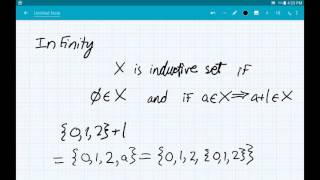 4:03 PM
Untitled Note
Infinity
X is inductive set if
∅∈X and if a∈X⇒a+1∈X
{0,1,2}+1
={0,1,2,a}={0,1,2,{0,1,2}}